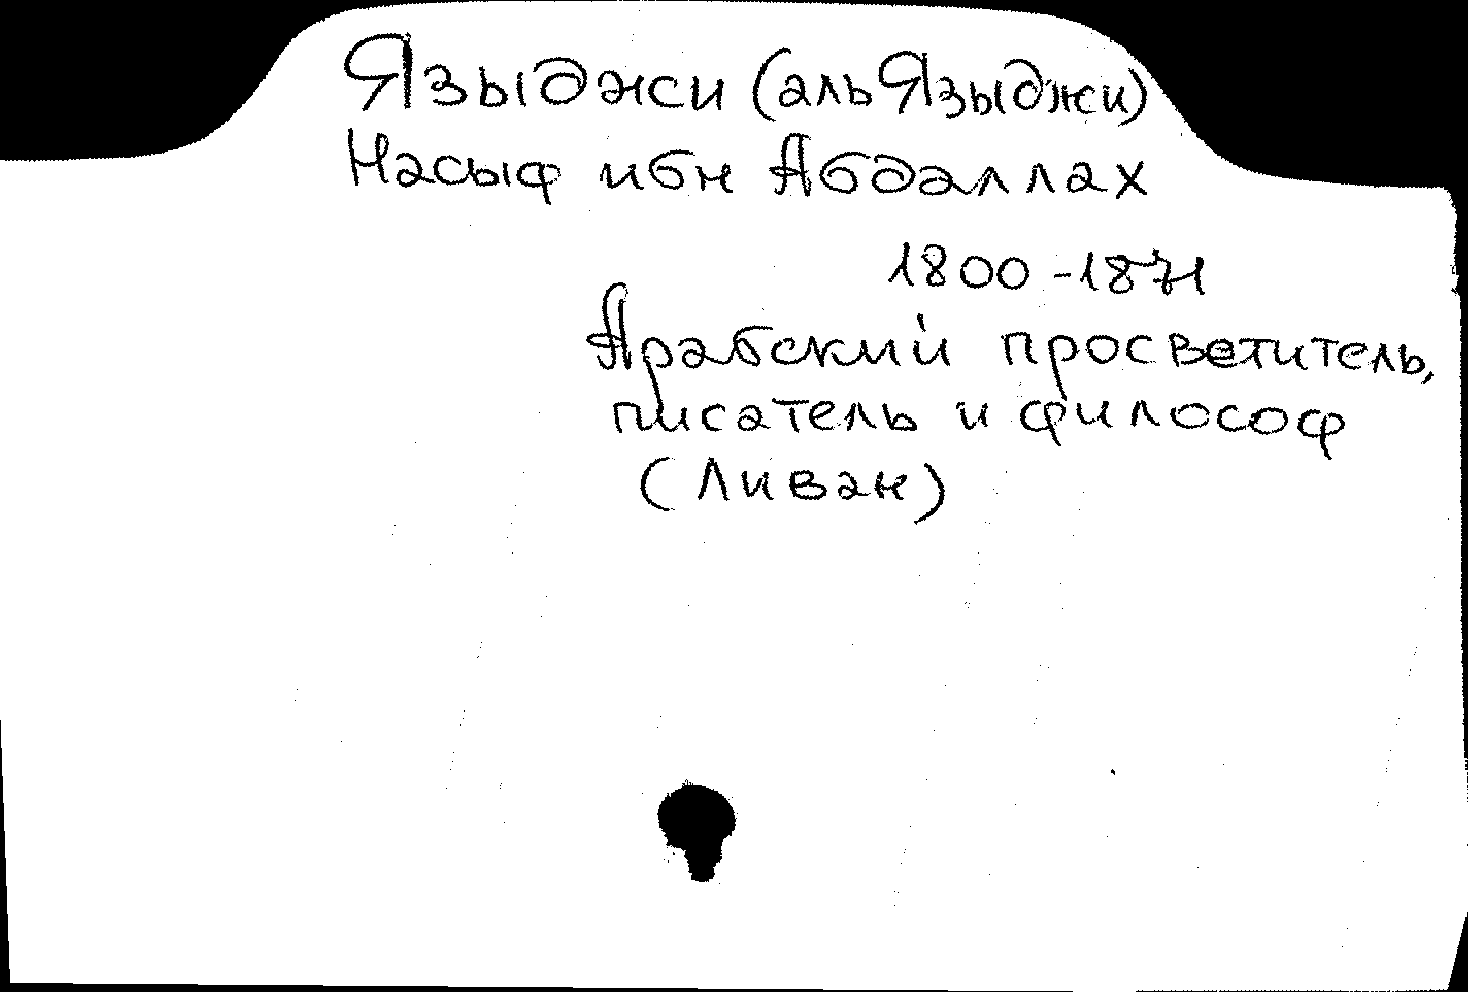 Языджи (аль Языджи)
Насыф ибн Абдаллах
1800-1871
Арабский просветитель,
писатель и философ
(Ливан)